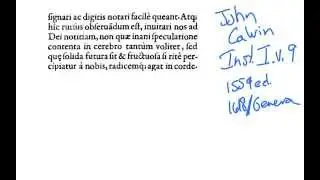 signari ac digitis notari facilè queant. Atq;
hîc rursus obseruãdum est, inuitari nos ad
Dei notitiam, non quæ inani speculatione
contenta in cerebro tantùm volitet, sed
quę solida futura sit & fructuosa si ritè per-
cipiatur à nobis, radicemq; agat in corde.
John
Calvin
Inst. I. v. 9
1559 ed
1618/Geneva